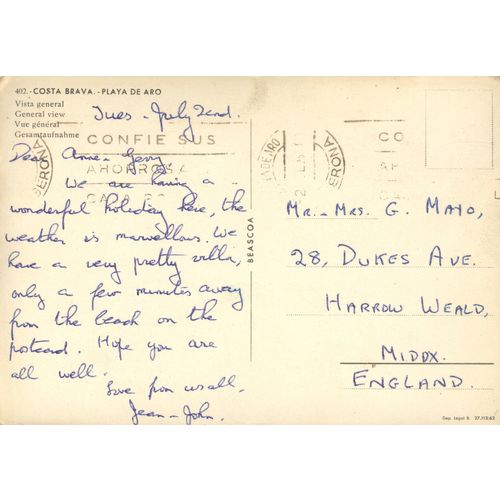 402. - COSTA BRAVA. - PLAYA DE ARO
Vista general
General view
Vue général
Gesamtaufnahme
Tues - July 2nd.
CONFIE SUS
AHORROS A
GERONA
Dear Anne - Gerry,
We are having a
wonderful holiday here, the
weather is marvellous. We
have a very pretty villa,
only a few minutes away
from the beach on the
postcard. Hope you are
all well.
Love from us all.
Jean - John.
BEASCOA
GERONA
CO
AH
CA
Mr. - Mrs. G. Mayo,
28, Dukes Ave.
Harrow Weald,
Middx.
England.
Dep. Legal B. 27.112-62